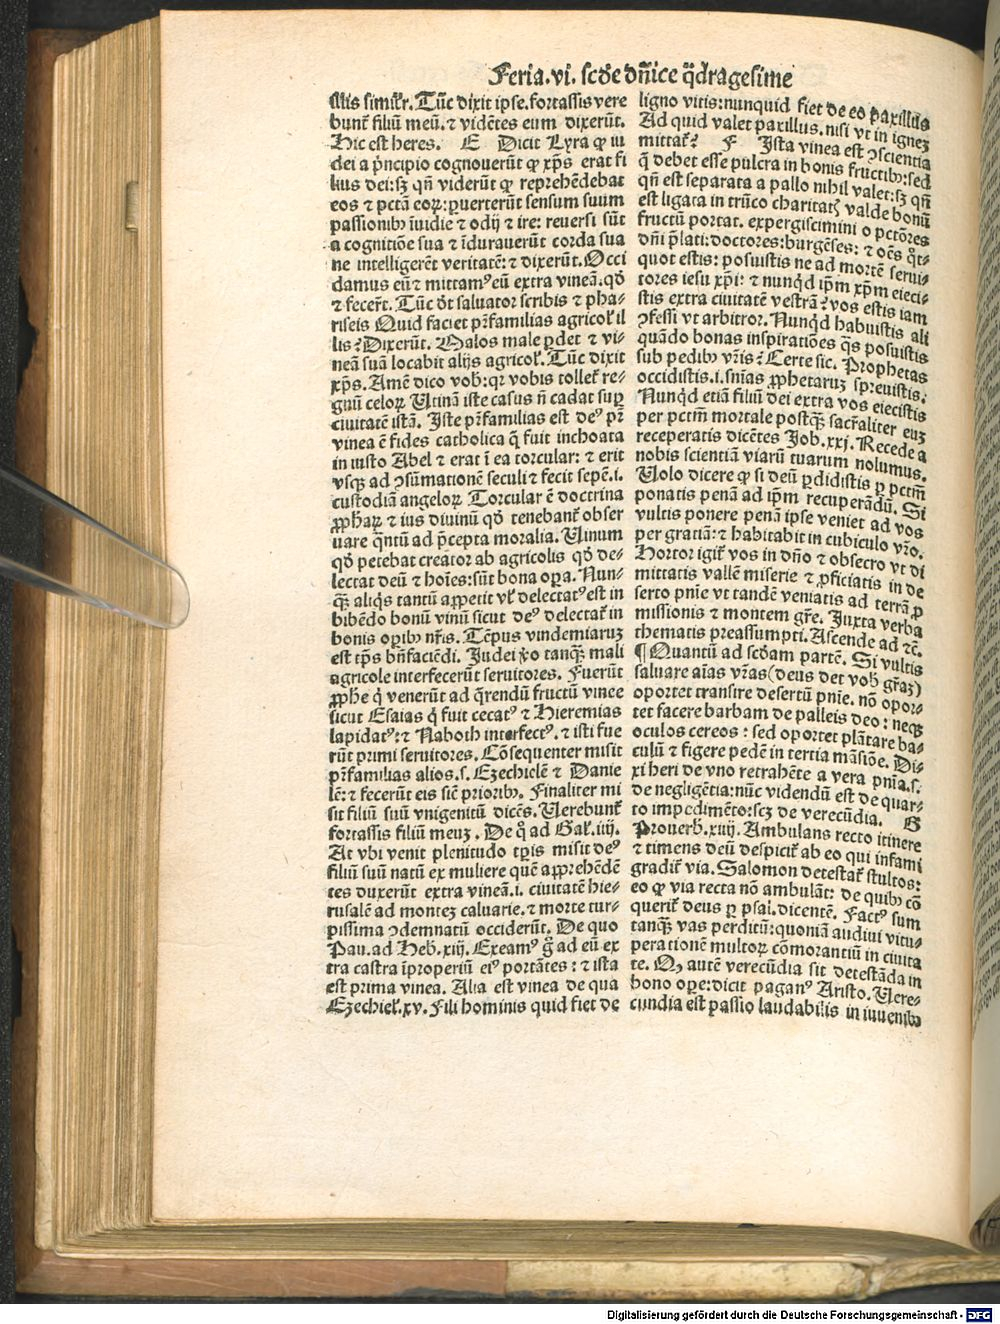 Feria.vi. scd̄e dn̄ice q̄dragesime
illis simil̄r. Tūc dixit ipse. fortassis vere
bunt̄ filiū meū. ⁊ vidētes eum dixerūt.
Hic est heres. E Dicit Lyra ꝙ iu
dei a pⁱncipio cognouerūt ꝙ xp̄s erat fi
lius dei: sꝫ qn̄ viderūt ꝙ reprehēdebat
eos ⁊ pctā eoꝝ: ꝑuerterūt sensum suum
passionibꝰ īuidie ⁊ odij ⁊ ire: reuersi sūt
a cognitiōe sua ⁊ īdurauerūt corda sua
ne intelligerēt veritatē: ⁊ dixerūt. Occi
damus eū ⁊ mittamꝰ eū extra vineā. qd̄
⁊ fecer̄t. Tūc dt̄ saluator scribis ⁊ pha-
riseis Quid faciet pr̄familias agricol̄ il
lis? Dixerūt. Malos male ꝑdet ⁊ vi-
neā suā locabit alijs agricol̄. Tūc dixit
xp̄s. Amē dico vob̄: qꝛ vobis tollet̄ re-
gnū celoꝝ Utinā iste casus n̄ cadat suꝑ
ciuitatē istā. Iste pr̄familias est deꝰ pr̄
vinea ē fides catholica q̄ fuit inchoata
in iusto Abel ⁊ erat ī ea torcular: ⁊ erit
vsqꝫ ad ꝯsūmationē seculi ⁊ fecit sepē .i.
custodiā angeloꝝ Torcular ē doctrina
ꝓphaꝝ ⁊ ius diuinū qd̄ tenebant̄ obser
uare qⁿtū ad p̄cepta moralia. Uinum
qd̄ petebat creator ab agricolis qd̄ de-
lectat deū ⁊ hoīes: sūt bona oꝑa. Nun-
qꝫ aliqⁱs tantū appetit vl̄ delectatꝰ est in
bibēdo bonū vinū sicut deꝰ delectat̄ in
bonis oꝑibꝰ nr̄is. Tēpus vindemiaruꝫ
est tp̄s bn̄faciēdi. Iudei v̊o tanqꝫ mali
agricole interfecerūt seruitores. Fuerūt
ꝓphe qⁱ venerūt ad qrendū fructū vinee
sicut Esaias qⁱ fuit cecatꝰ ⁊ Hieremias
lapidatꝰ: ⁊ Naboth interfectꝰ. ⁊ isti fue
rūt primi seruitores. Cōsequenter misit
pr̄familias alios .s. Ezechielē ⁊ Danie
lē: ⁊ fecerūt eis sic̄ prioribꝰ. Finaliter mi
sit filiū suū vnigenitū dicēs. Uerebunt̄
fortassis filiū meuꝫ. De q̊ ad Gal̄. iiij.
At vbi venit plenitudo tꝑis misit deꝰ
filiū suū natū ex muliere quē apprehēdē
tes duxerūt extra vineā .i. ciuitatē hie-
rusalē ad monteꝫ caluarie. ⁊ morte tur-
pissima ꝯdemnatū occiderūt. De quo
Pau. ad Heb. xiij. Exeamꝰ g̊ ad eū ex
tra castra īproperiū eiꝰ portātes: ⁊ ista
est prima vinea. Alia est vinea de qua
Ezechiel̄. xv. Fili hominis quid fiet de
ligno vitis: nunquid fiet de eo paxillus
Ad quid valet paxillus. nisi vt in igneꝫ
mittat̄? F Ista vinea est ꝯscientia
q̄ debet esse pulcra in bonis fructibꝰ: sed
qn̄ est separata a pallo nihil valet: sꝫ qn̄
est ligata in trūco charitatꝭ valde bonū
fructū portat. expergiscimini o pctōres
dn̄i p̄lati: doctores: burgēses: ⁊ oēs qⁱt-
quot estis: posuistis ne ad mortē serui-
tores iesu xp̄i: ⁊ nunqⁱd ip̄m xp̄m eieci-
stis extra ciuitatē vestrā? vos estis iam
ꝯfessi vt arbitror. Nunqⁱd habuistis ali
quādo bonas inspiratiōes q̄s posuistis
sub pedibꝰ vr̄is? Certe sic. Prophetas
occidistis .i. sn̄ias ꝓphetaruꝫ spreuistis.
Nunqⁱd etiā filiū dei extra vos eiecistis
per pctm̄ mortale postqꝫ sacr̄aliter euꝫ
receperatis dicētes Job. xxj. Recede a
nobis scientiā viarū tuarum nolumus.
Uolo dicere ꝙ si deū ꝑdidistis ꝑ pctm̄
ponatis penā ad ip̄m recuperādū. Si
vultis ponere penā ipse veniet ad vos
per gratiā: ⁊ habitabit in cubiculo vr̄o.
Hortor igit̄ vos in dn̄o ⁊ obsecro vt di
mittatis vallē miserie ⁊ ꝓficiatis in de
serto pn̄ie vt tandē veniatis ad terrā ꝓ
missionis ⁊ montem gr̄e. Iuxta verba
thematis preassumpti. Ascende ad ⁊c̄.
¶ Quantū ad scd̄am partē. Si vultis
saluare aīas vr̄as (deus det vob̄ gr̄aꝫ)
oportet transire desertū pn̄ie. nō opor-
tet facere barbam de palleis deo: neqꝫ
oculos cereos: sed oportet plātare ba-
culū ⁊ figere pedē in tertia māsiōe. Di-
xi heri de vno retrahēte a vera pn̄ia .s.
de negligētia: nūc videndū est de quar-
to impedimēto: scꝫ de verecūdia. G
Prouerb̄. xiiij. Ambulans recto itinere
⁊ timens deū despicit̄ ab eo qui infami
gradit̄ via. Salomon detestat̄ stultos:
eo ꝙ via recta nō ambulāt: de quibꝰ cō
querit̄ deus ꝑ psal. dicentē. Factꝰ sum
tanqꝫ vas perditū: quoniā audiui vitu-
perationē multoꝝ cōmorantiū in ciuita
te. Qꝫ autē verecūdia sit detestāda in
bono oꝑe: dicit paganꝰ Aristo. Uere-
cundia est passio laudabilis in iuuenibꝰ
Digitalisierung gefördert durch die Deutsche Forschungsgemeinschaft - DFG